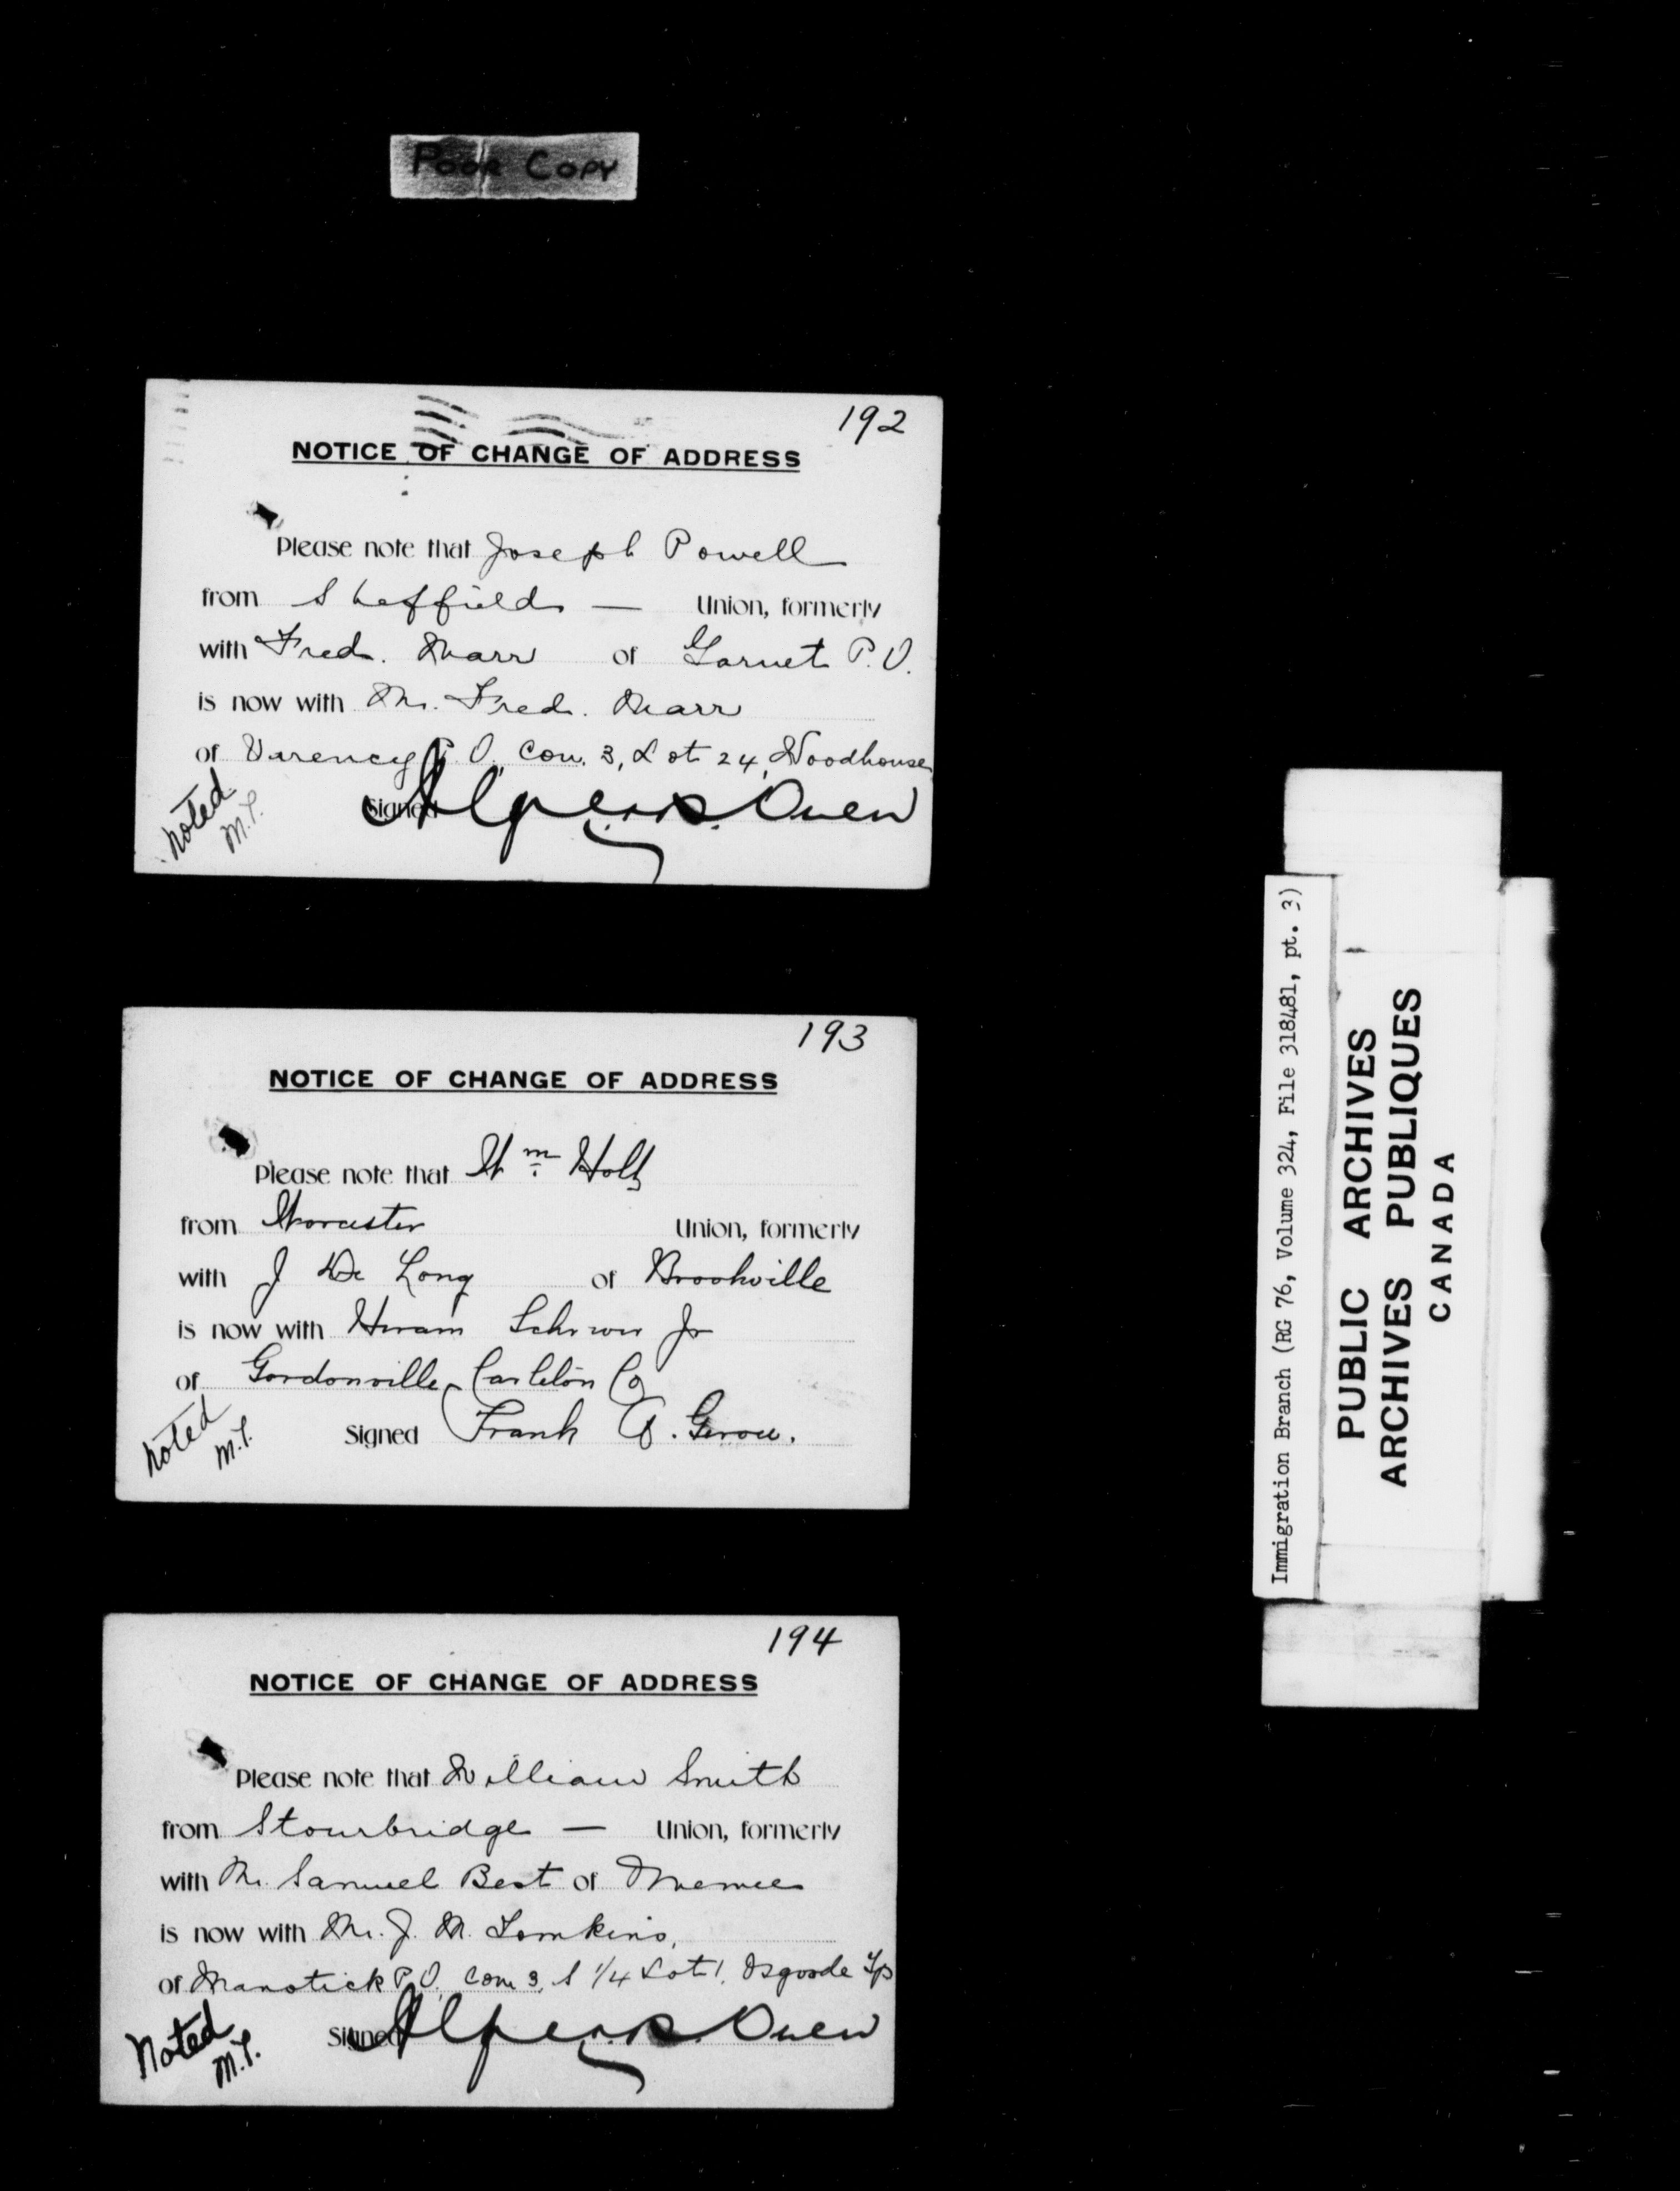 Poor Copy
192
NOTICE OF CHANGE OF ADDRESS
Please note that Joseph Powell
from Sheffield — Union, formerly
with Fred. Marr of Garnet P.O.
is now with Mr. Fred. Marr
of Varency P.O. Con. 3, Lot 24, Woodhouse
Signed Owen
Noted
M.T.
193
NOTICE OF CHANGE OF ADDRESS
Please note that Wm Holt
from Worcester Union, formerly
with J De Long of Brookville
is now with Hiram Jr
of Gordonville Carleton Co
Signed Frank A. Gerow.
Noted
M.T.
194
NOTICE OF CHANGE OF ADDRESS
Please note that William Smith
from Stourbridge — Union, formerly
with Mr. Samuel Best of
is now with Mr. J. M. Tomkins,
of Manotick P.O. Con 3, S 1/4 Lot 1, Osgoode Tp
Signed Owen
Noted
M.T.
Immigration Branch (RG 76, Volume 324, File 318481, pt. 3)
PUBLIC ARCHIVES
ARCHIVES PUBLIQUES
CANADA